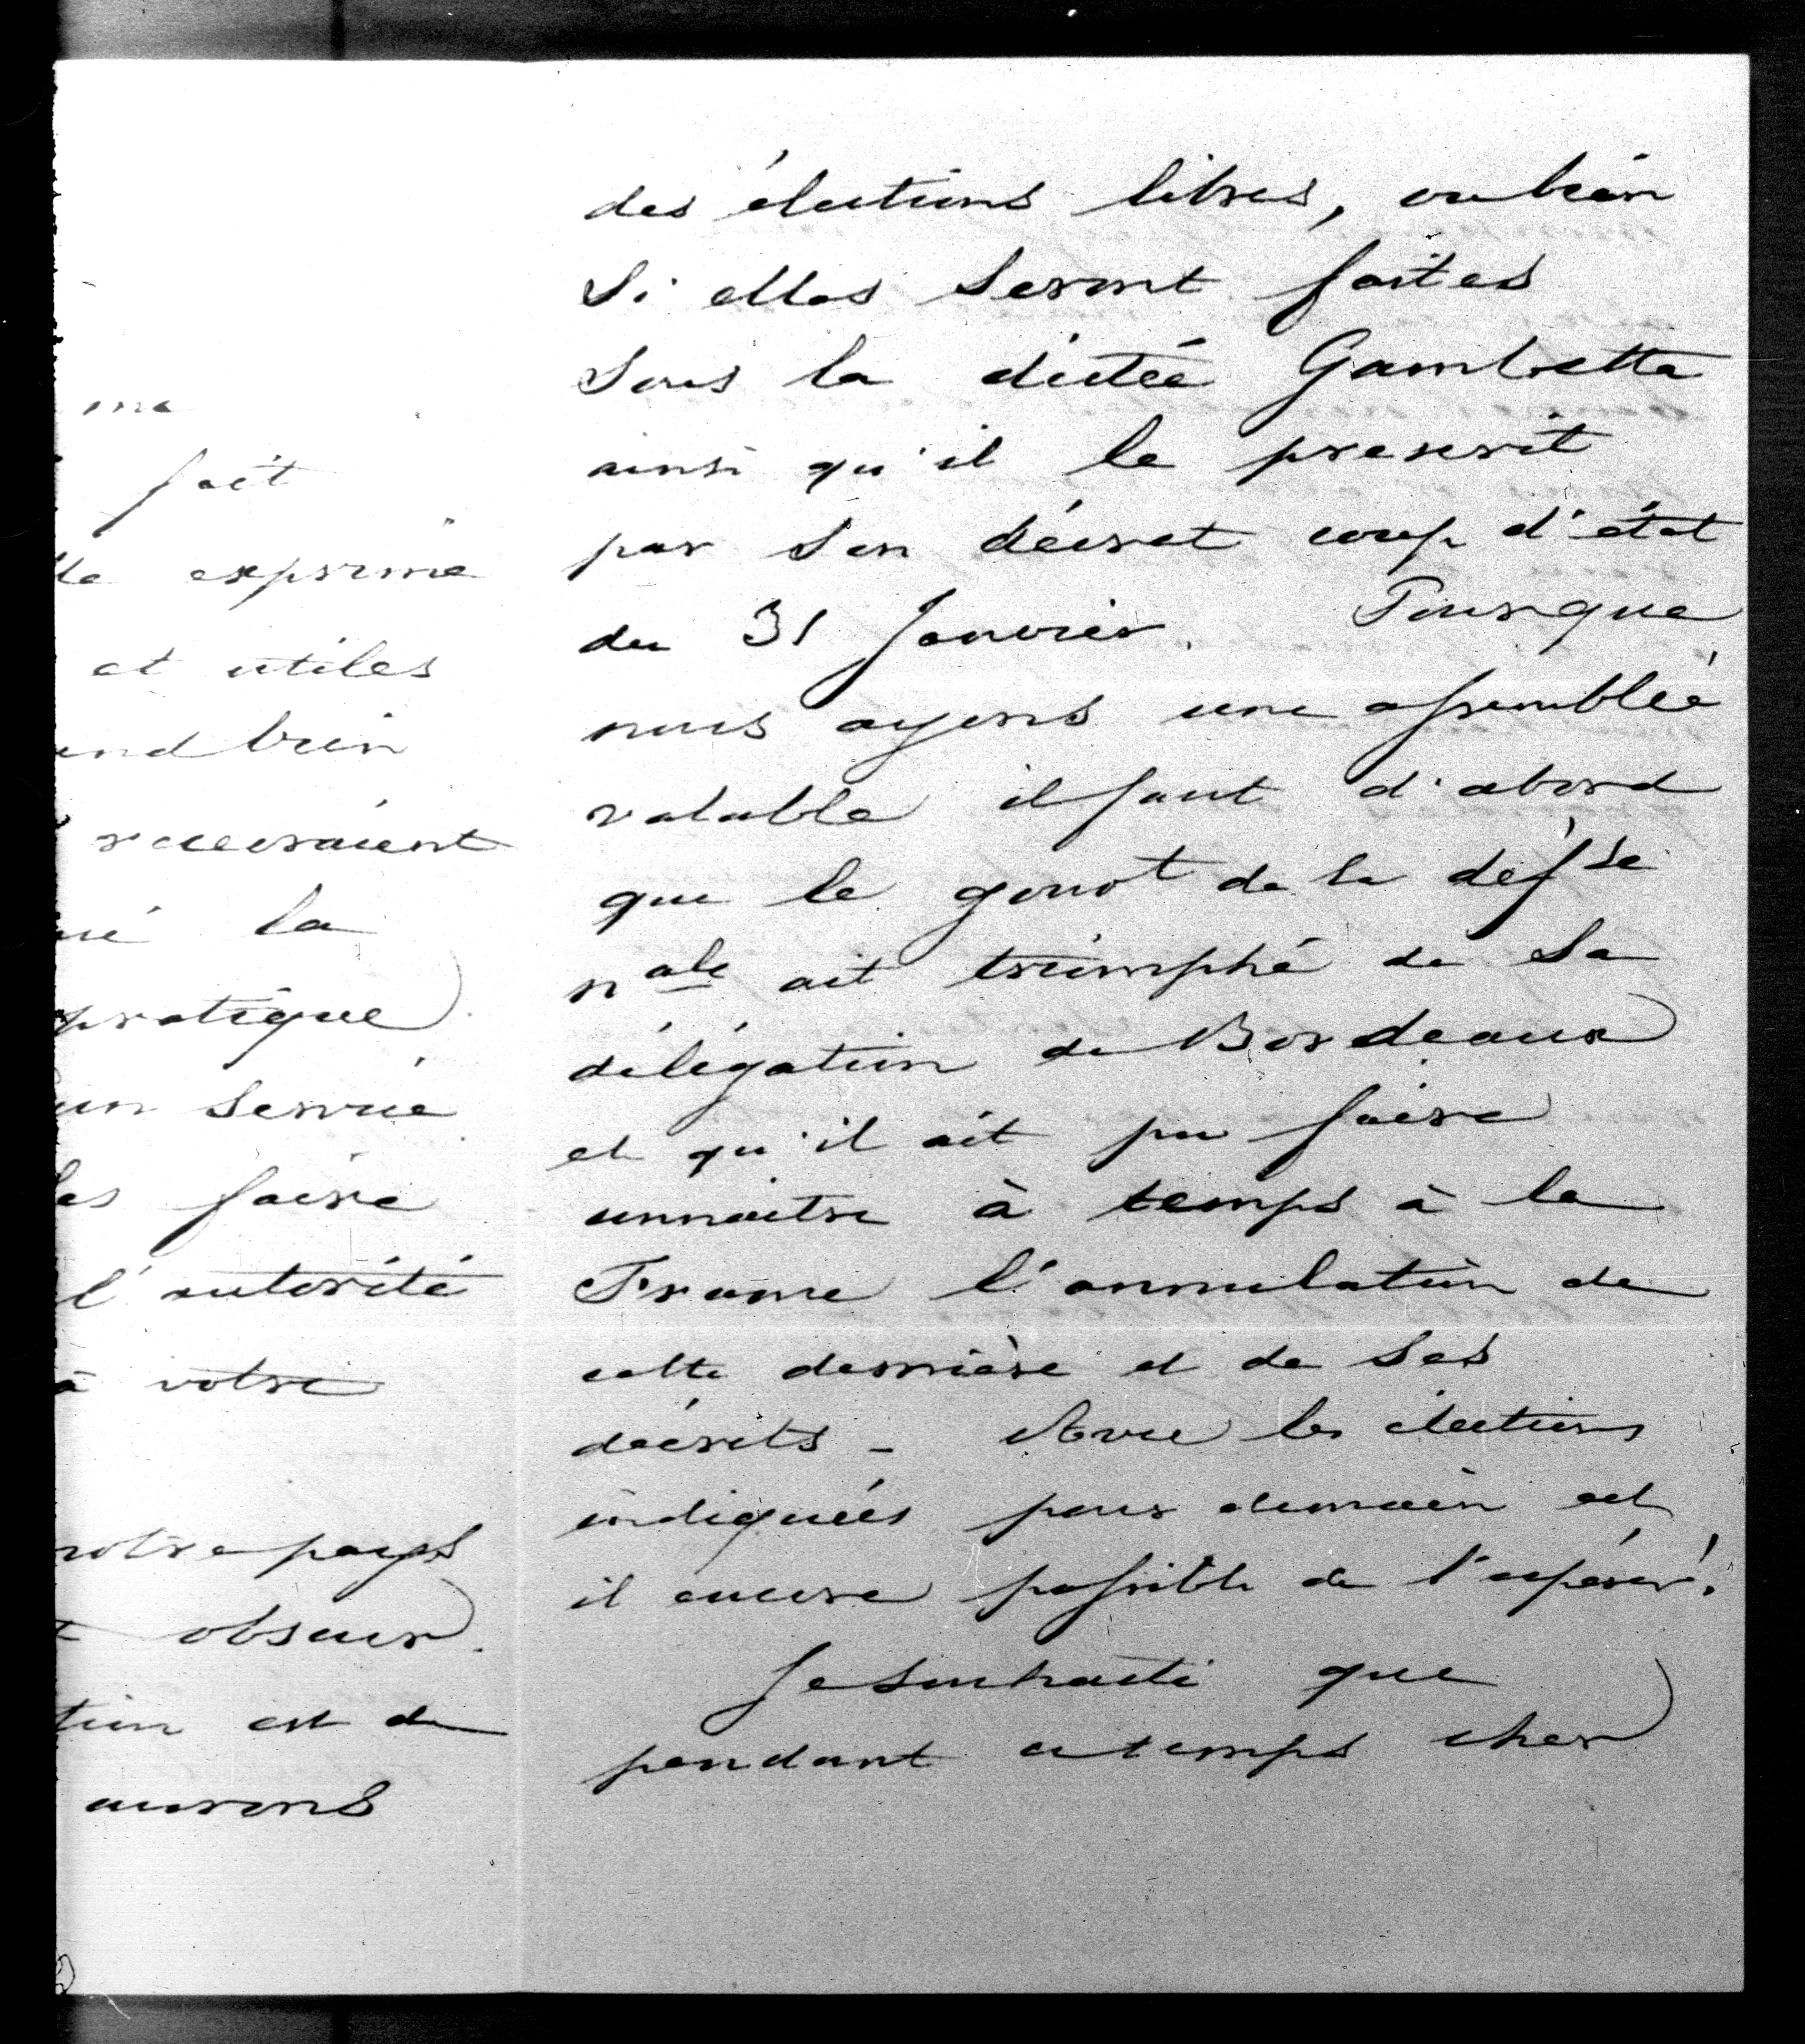 me
fait
le exprime
et utiles
and bien
recevraient
né la
pratique
un service
les faire
l'autorité
à votre
notre pays
t obscur.
tion est de
aurons
des élections libres, ou bien
si elles seront faites
sous la dictée Gambetta
ainsi qu'il le prescrit
par son décret coup d'état
du 31 Janvier. Pour que
nous ayons une assemblée
valable il faut d'abord
que le gouvt de la défse
nale ait triomphé de sa
délégation de Bordeaux
et qu'il ait pu faire
connaitre à temps à la
France l'annulation de
cette dernière et de ses
décrets - Avec les élections
indiquées pour demain est
il encore possible de l'espérer!
Je souhaite que
pendant ce temps cher